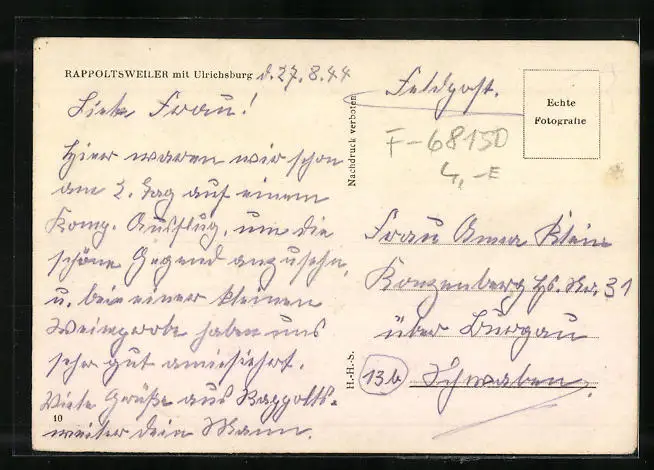 RAPPOLTSWEILER mit Ulrichsburg d. 27.8.44
Liebe Frau!
Hier waren wir schon
am 2. Tag auf einem
Komp. Ausflug, um die
schöne Gegend anzusehn,
u. bei einer kleinen
Weinprobe haben uns
sehr gut amiesiert.
Viele Grüße aus Rappolts-
weiler dein Mann.
10
Nachdruck verboten
H.-H.-S.
Feldpost.
Echte
Fotografie
F-68150
4,-E
Frau Anna Klein
Konzenberg Hs. No. 31
über Burgau
13b Schwaben